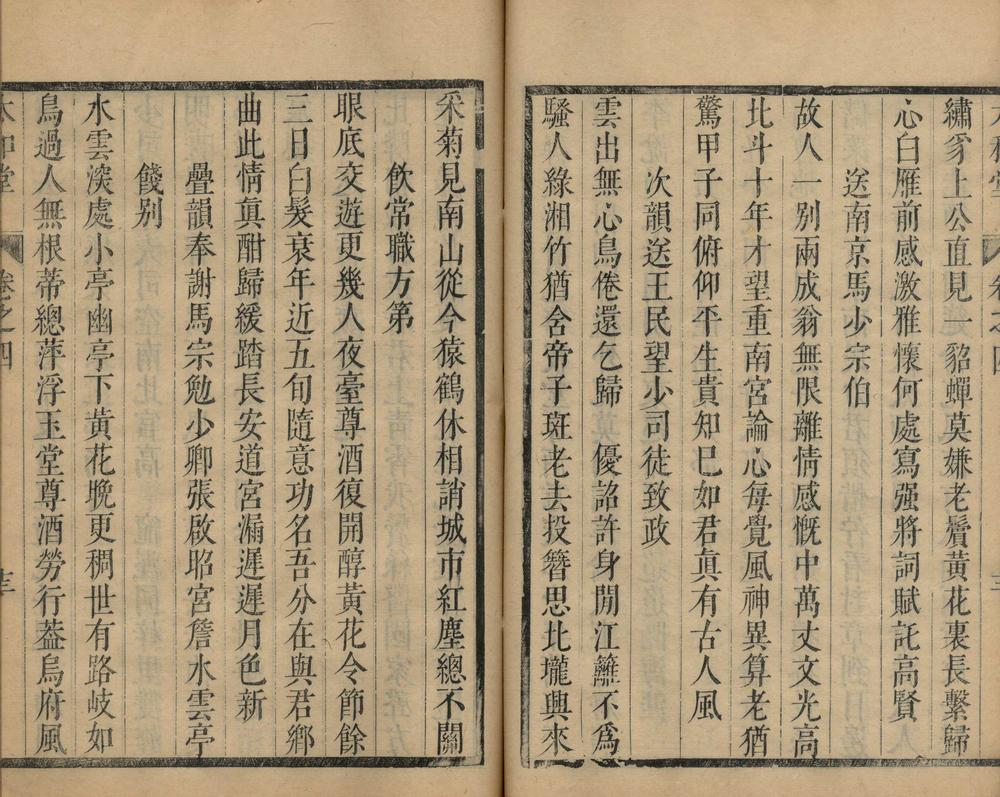 繡豸上公直見一貂蟬莫嫌老鬢黃花裏長繫歸
心白雁前感激雅懷何處寫强將詞賦託高賢
送南京馬少宗伯
故人一別兩成翁無限離情感慨中萬丈文光高
北斗十年才望重南宮論心每覺風神異算老猶
驚甲子同俯仰平生貴知已如君真有古人風
次韻送王民望少司徒致政
雲出無心鳥倦還乞歸優詔許身閒江蘺不為
騷人綠湘竹猶含帝子斑老去投簪思北壠興來
采菊見南山從今猿鶴休相誚城市紅塵總不關
飲常職方第
眼底交遊更幾人夜臺尊酒復開醇黃花令節餘
三日白髮衰年近五旬隨意功名吾分在與君鄉
曲此情真酣歸緩踏長安道宮漏遲遲月色新
疊韻奉謝馬宗勉少卿張啟昭宮詹水雲亭
餞別
水雲深處小亭幽亭下黃花晚更稠世有路岐如
鳥過人無根蒂總萍浮玉堂尊酒勞行葢烏府風
卷之四